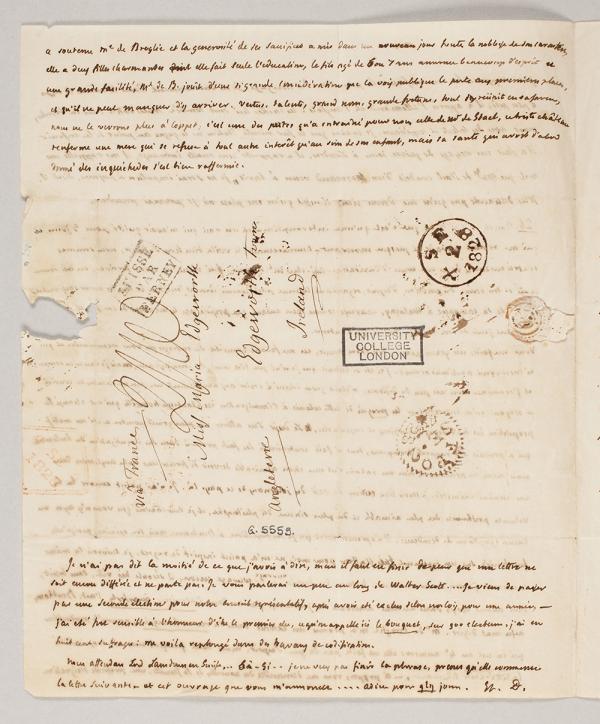 a soutenu Mr. de Broglie et la generosité de ses sacrifices a mis dans un nouveau jour toute la noblesse de son caractère,
elle a deux filles charmantes dont elle fait seule l'education, le fils agé de 6 ou 7 ans annonce beaucoup d'esprit et
une grande facilité, Mr. de B. jouit d'une si grande consideration que la voix publique le porte aux premieres places,
et qu'il ne peut manquer d'y arriver. vertus, talents, grand nom, grande fortune, tout se réunit en sa faveur,
nous ne le verrons plus à Coppet, c'est une des pertes qu'a entrainé pour nous celle de Mr de Stael, ce triste château
renferme une mere qui se refuse à tout autre interêt qu'au soin de son enfant, mais sa santé qui avoit d'abord
donné des inquietudes s'est bien raffermie.
SUISSE
PAR
FERNEY
via France
Miss Maria Edgeworth
Edgeworth Town
Ireland
Angleterre
SE
X 2 B
182
UNIVERSITY
COLLEGE
LONDON
G. 5559.
Je n'ai pas dit la moitié de ce que j'avois à dire, mais il faut en finir de peur que ma lettre ne
soit encore differée et ne parte pas. Je vous parlerai un peu au long de Walter Scott.... Je viens de passer
par une seconde élection pour notre conseil représentatif, après avoir été exclus selon nos loix pour une année —
j'ai été fort sensible à l'honneur d'être le premier élu, ce qu'on appelle ici le bouquet, sur 900 electeurs, j'ai eu
huit cent suffrages: me voila replongé dans du travail de codification.
nous attendons Lord Lansdown en Suisse... Ça-Si.. je ne veux pas finir la phrase, parce qu'elle commence
la lettre suivante — et cet ouvrage que vous m'annoncez .... adieu pour qlq jours. Et. D.